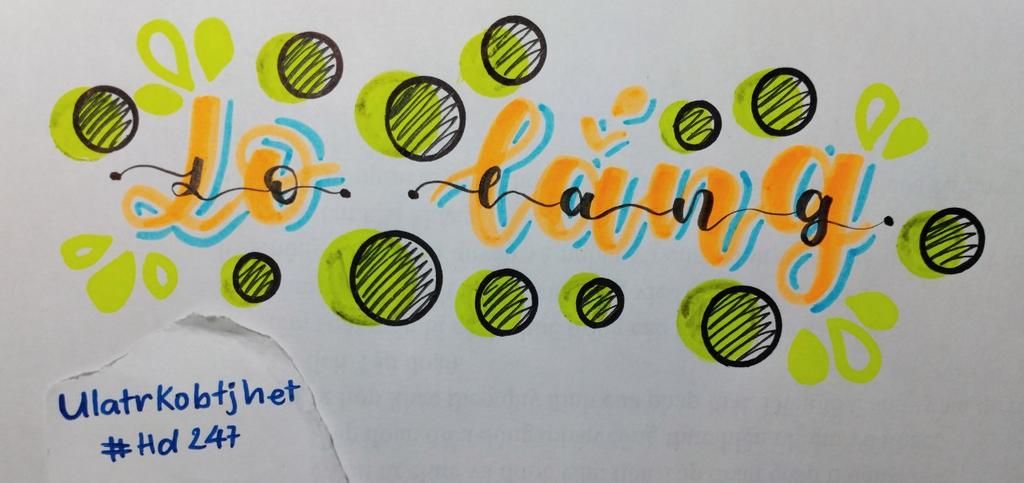 Lo lắng
UlatrKobtjhet
#Hd 247